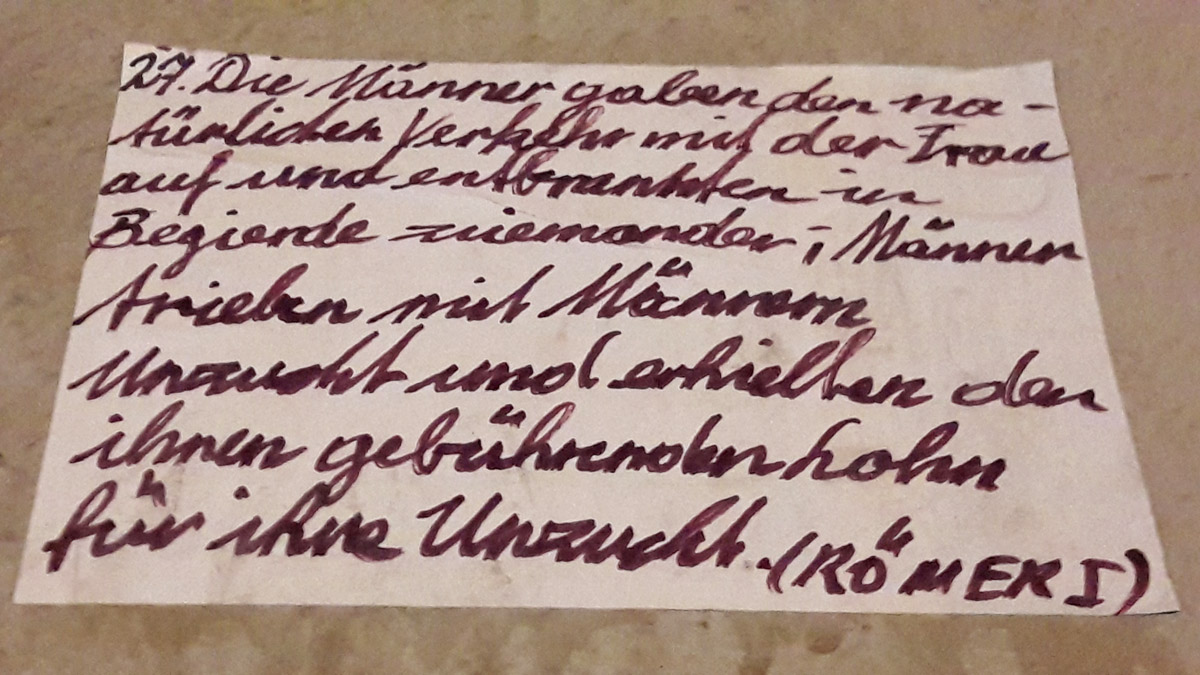 27. Die Männer gaben den na-
türlichen Verkehr mit der Frau
auf und entbrannten in
Begierde zueinander; Männer
trieben mit Männern
Unzucht und erhielten den
ihnen gebührenden Lohn
für ihre Unzucht. (RÖMER I)